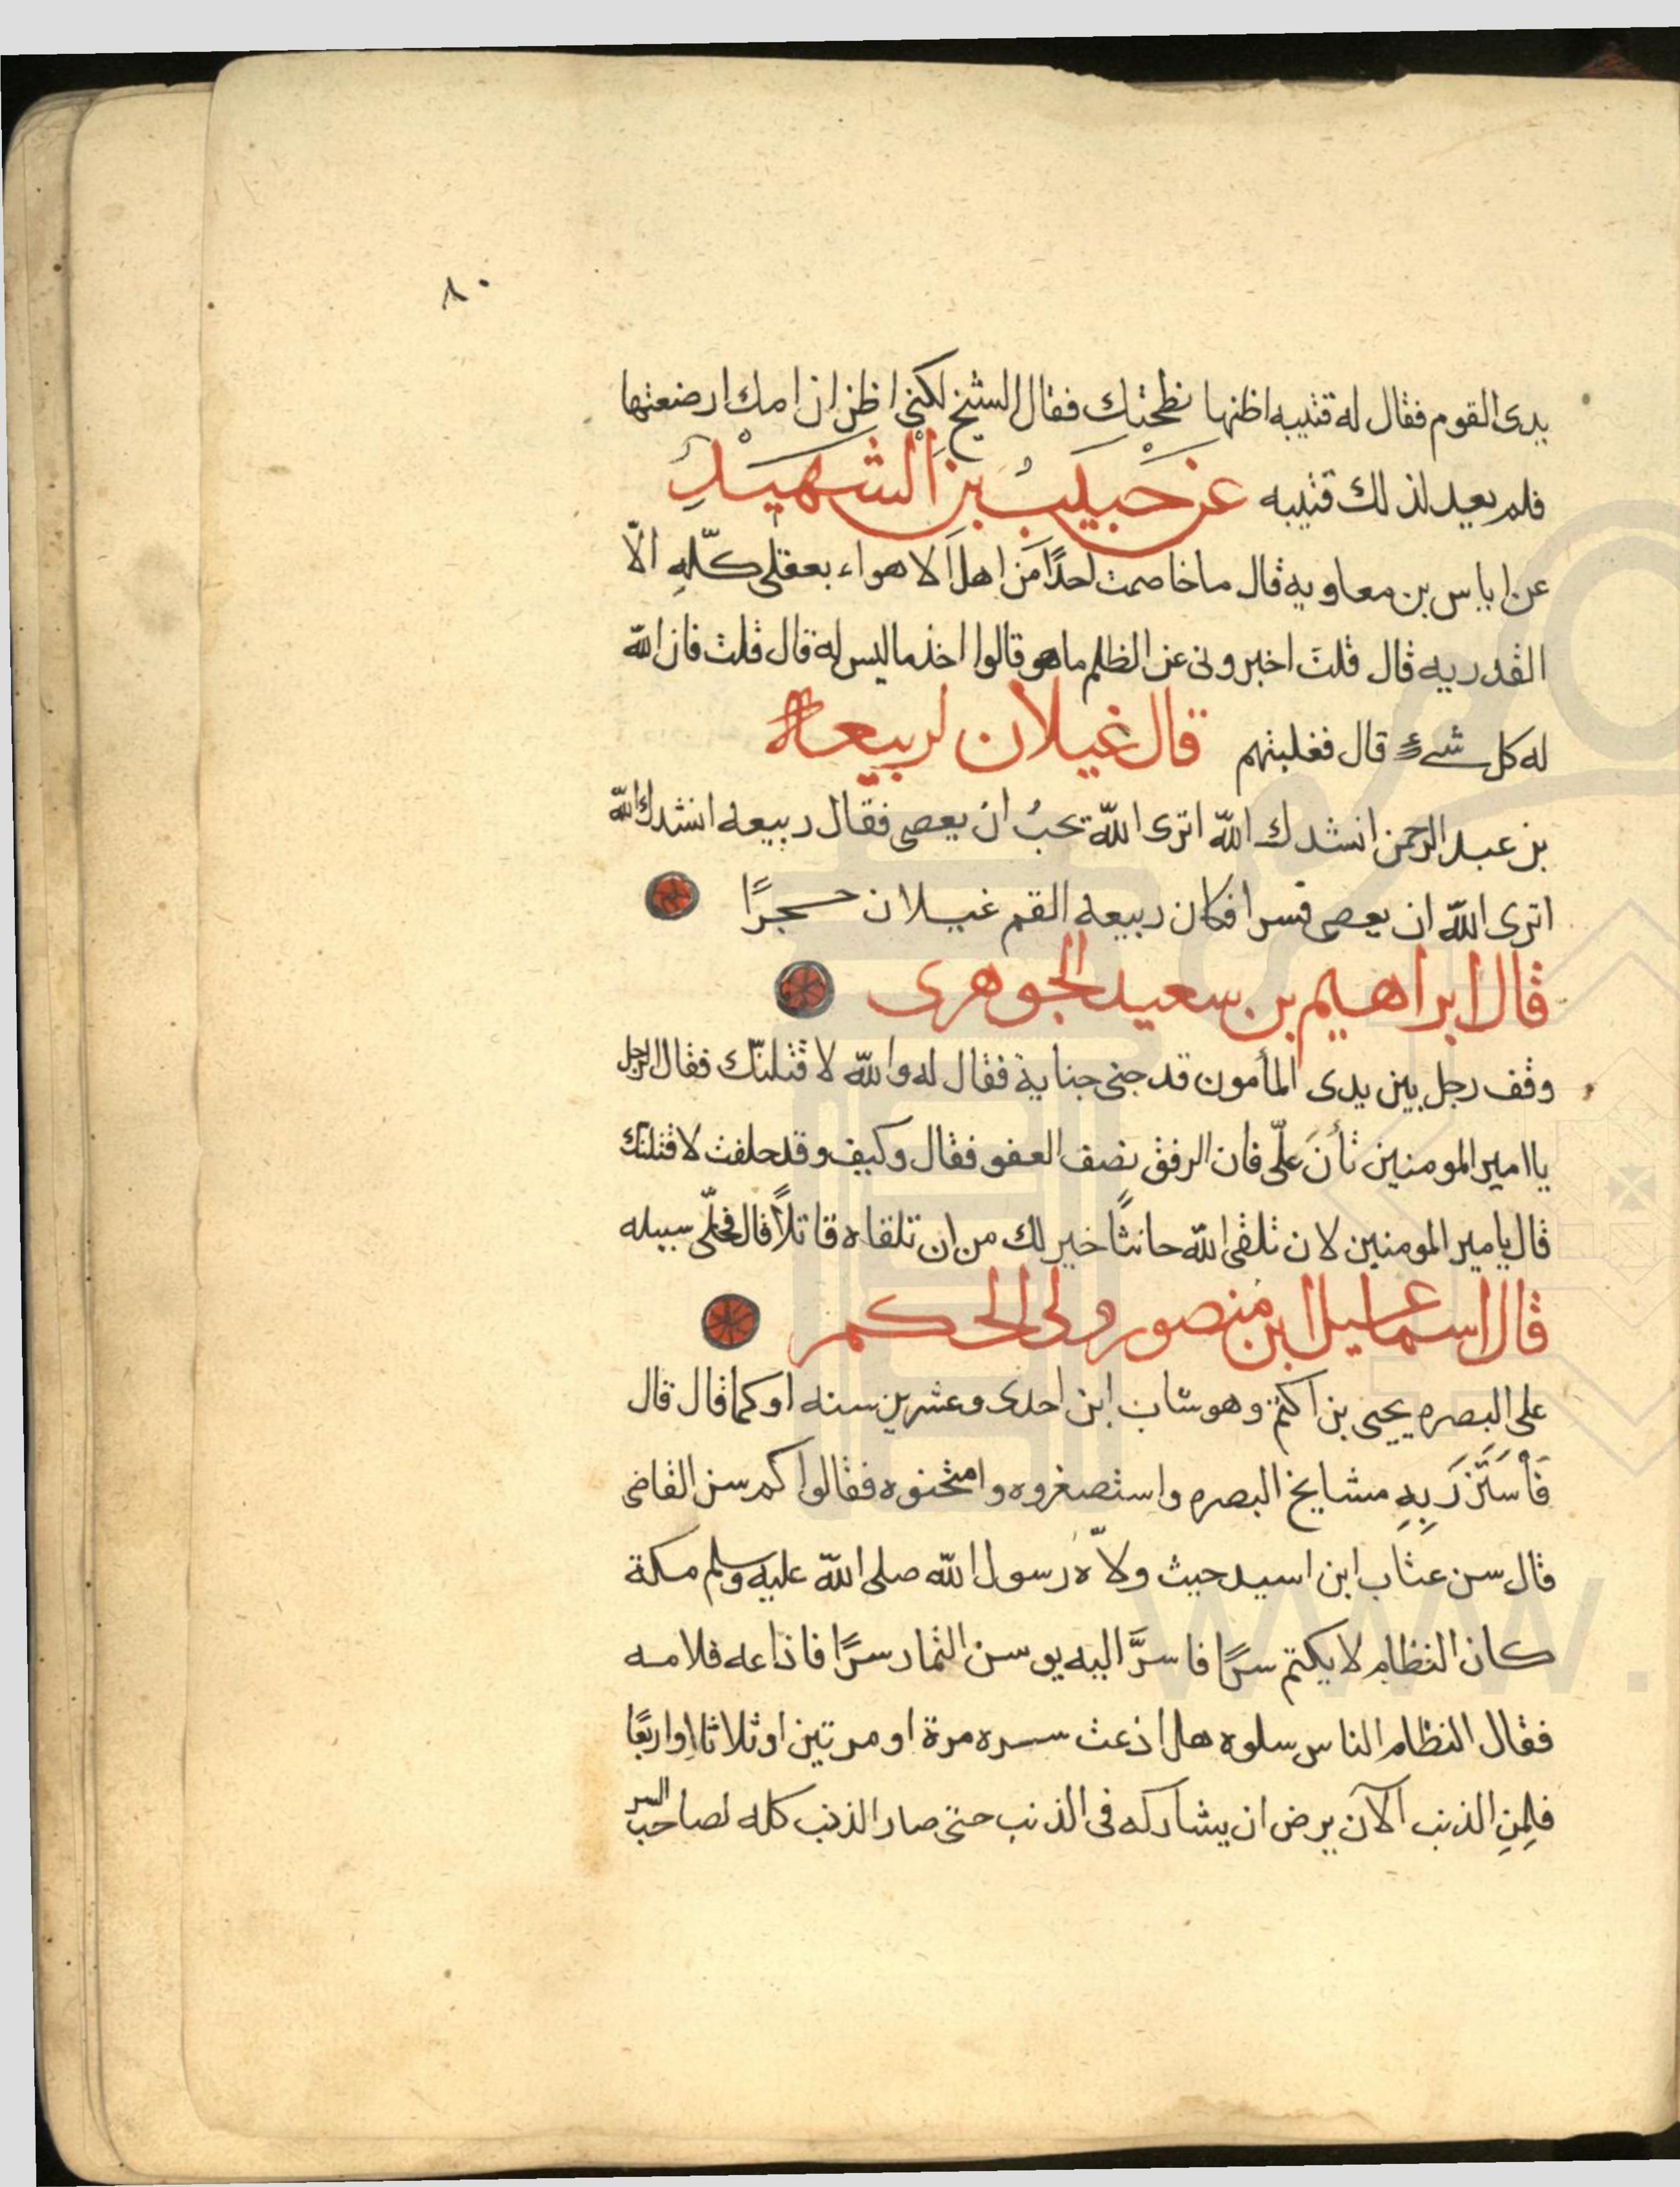 ٨٠
يدى القوم فقال له قتيبه اظنها نطحتك فقال الشيخ لكنى اظن ان امك ارضعتها
فلم يعد لذلك قتيبه عن حبيب بن الشهيد
عن اياس بن معاويه قال ما خاصمت احدًا من اهل الاهواء بعقلى كلّهِ الّا
القدريه قال قلت اخبرونى عن الظلم ما هو قالوا اخذ ما ليس له قال قلت فان الله
له كل شىء قال فغلبتهم قال غيلان لربيعة
بن عبد الرحمن انشدك الله اترى الله يحبُ ان يعصى فقال ربيعه انشدك الله
اترى الله ان يعصى قسرا فكان ربيعه القم غيلان حجرًا
قال ابراهيم بن سعيد الجوهرى
وقف رجل بين يدى المأمون قد جنى جناية فقال له والله لاقتلنّك فقال الرجل
يا امير المومنين تأنَ علىّ فان الرفق نصف العفو فقال وكيف وقد حلفت لاقتلنك
قال يامير المومنين لان تلقى الله حانثًا خير لك من ان تلقاه قاتلًا قال فخلّى سبيله
قال اسماعيل ابن منصور ولى الحكم
على البصره يحيى بن اكثم وهو شاب ابن احدى وعشرين سنه او كما قال قال
فَأسَتَزرَ بِهِ مشايخ البصره واستصغروه وامتحنوه فقالوا كم سن القاضى
قال سن عتاب ابن اسيد حيث ولاّه رسول الله صلى الله عليه وسلم مكة
كان النظام لا يكتم سرًا فاسرَّ اليه يوسن التمار سرًا فاذاعه فلامه
فقال النظام الناس سلوه هل اذعت سره مرة او مرتين او ثلاثا او اربعًا
فلِمنِ الذنب الآن يرض ان يشاركه فى الذنب حتى صار الذنب كله لصاحب السر